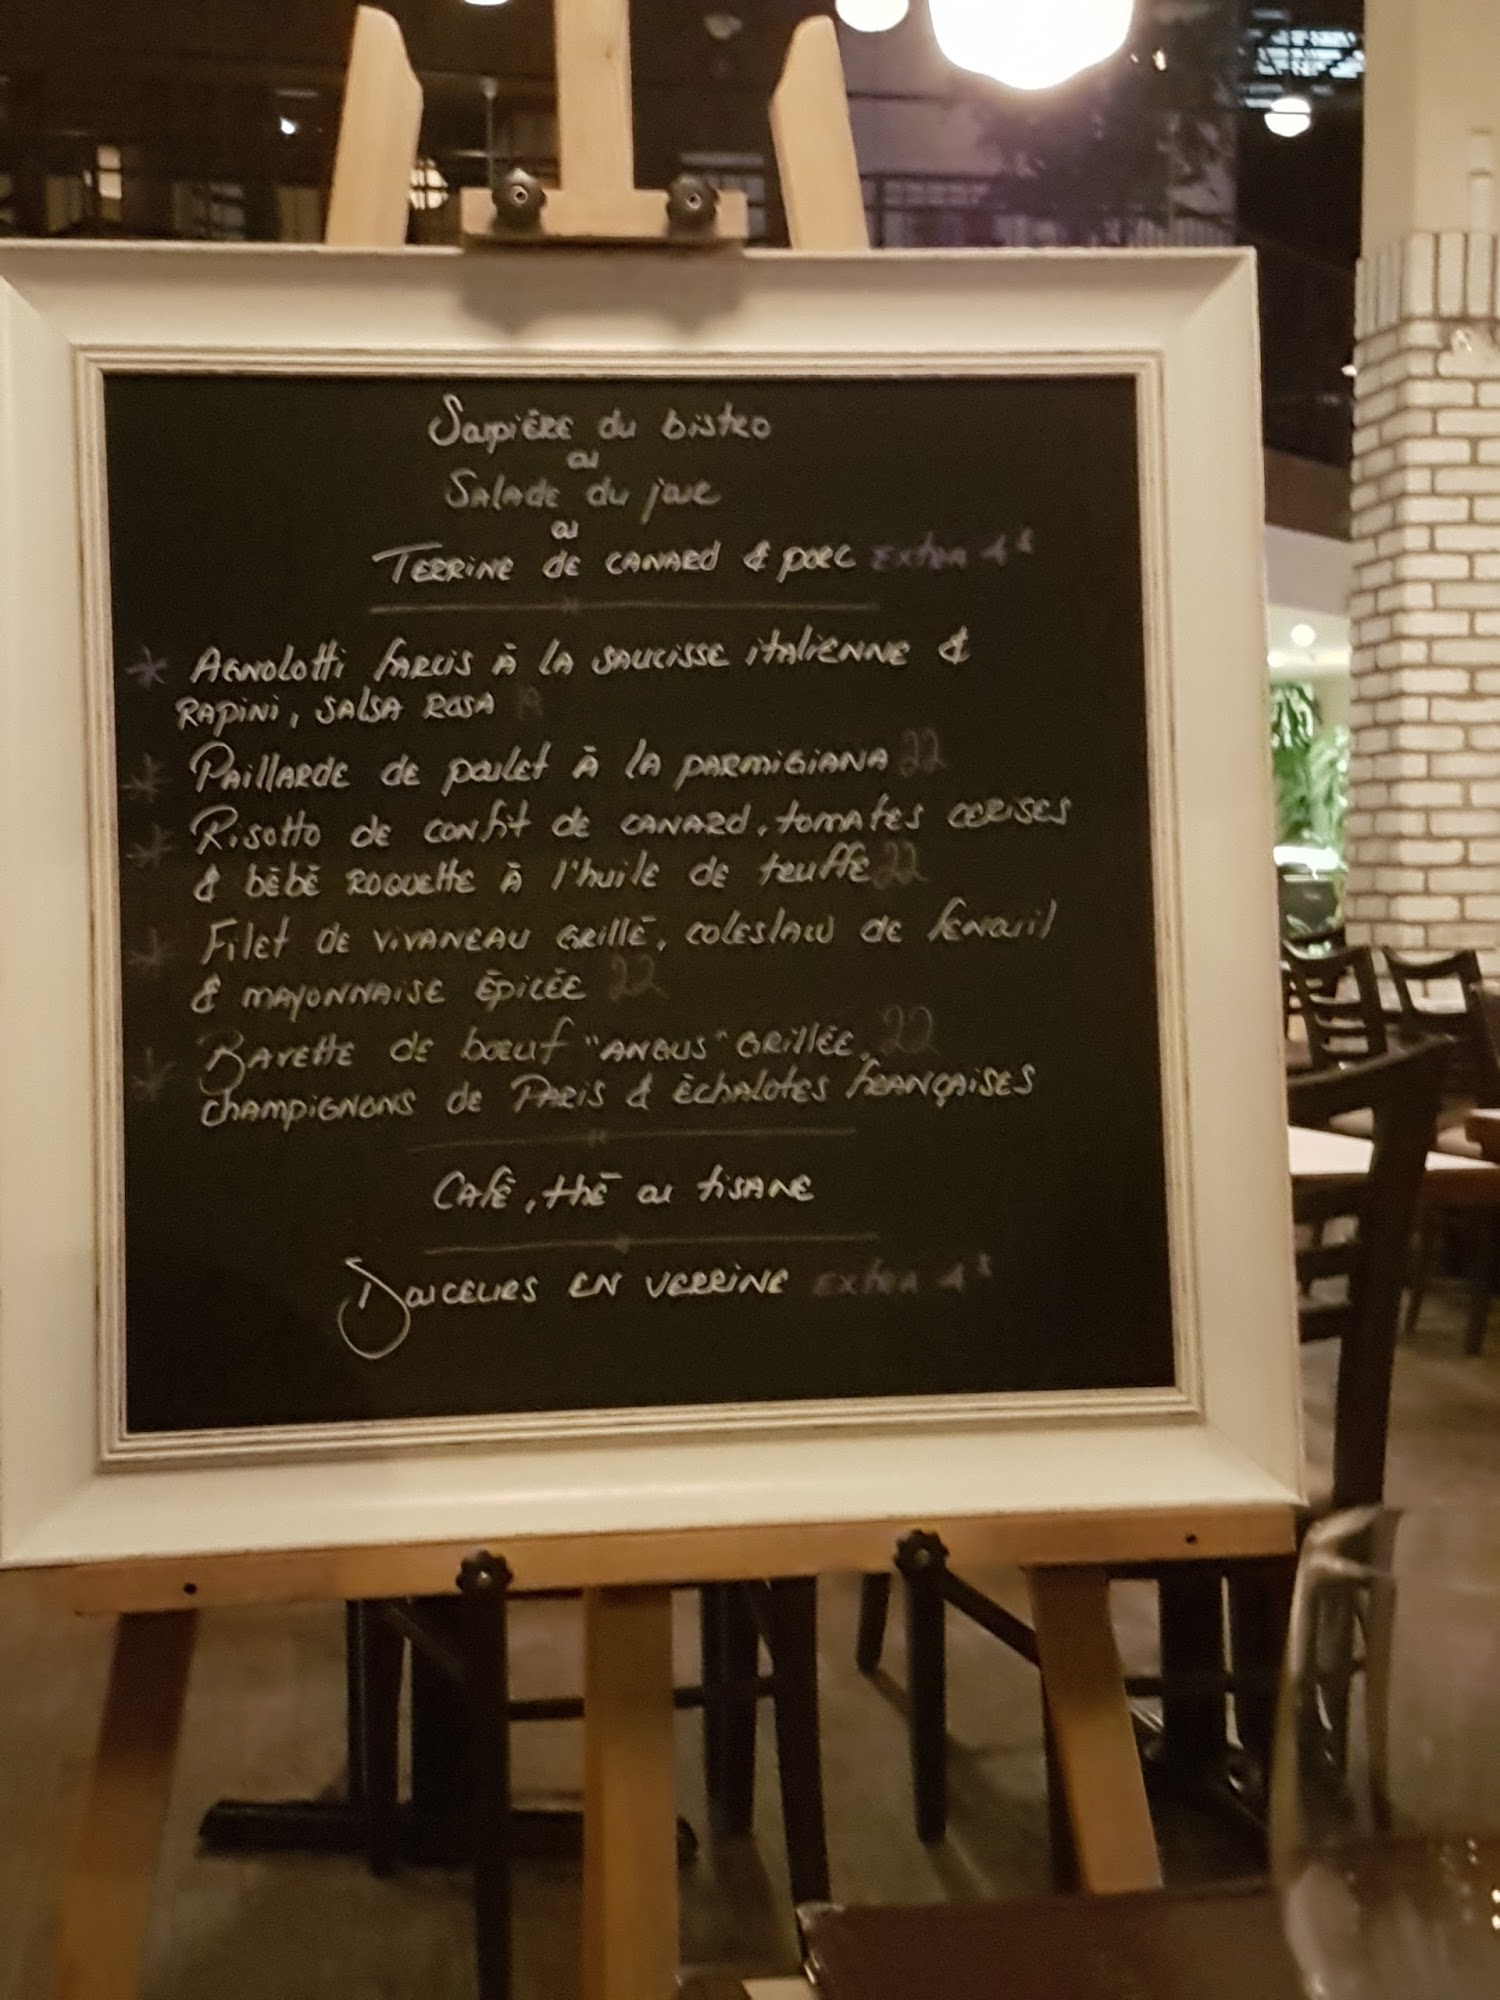 Soupière du bistro
ou
Salade du jour
ou
Terrine de canard & porc extra 4$
* Agnolotti farcis à la saucisse italienne &
rapini, salsa rosa 19
* Paillarde de poulet à la parmigiana 22
* Risotto de confit de canard, tomates cerises
& bébé roquette à l'huile de truffe 22
* Filet de vivaneau grillé, coleslaw de fenouil
& mayonnaise épicée 22
* Bavette de bœuf "Angus" grillée, 22
champignons de Paris & échalotes françaises
Café, thé ou tisane
Douceurs en verrine extra 4$